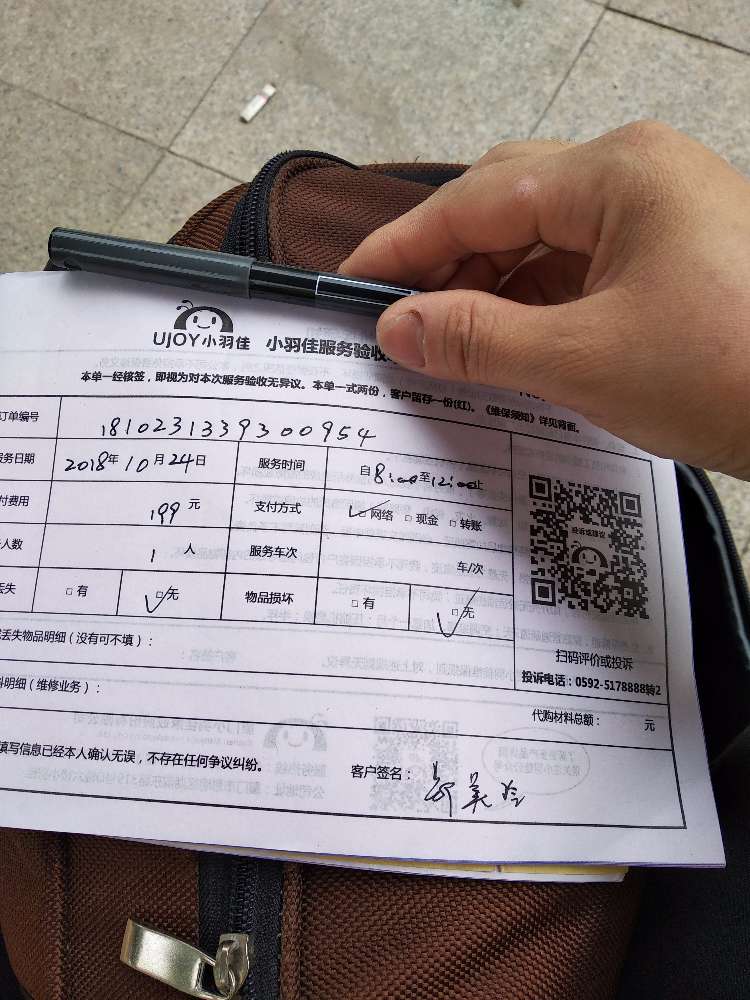 UJOY小羽佳 小羽佳服务验收
本单一经核签，即视为对本次服务验收无异议。本单一式两份，客户留存一份(红)。《维保须知》详见背面。
订单编号 1810231339300954
服务日期 2018年10月24日 服务时间 自8:00至12:00止
付费用 199元 支付方式 □网络 □现金 □转账
人数 1人 服务车次 车/次
丢失 □有 □无 物品损坏 □有 □无
投诉或建议
扫码评价或投诉
投诉电话：0592-5178888转2
丢失物品明细（没有可不填）：
料明细（维修业务）：
代购材料总额： 元
填写信息已经本人确认无误，不存在任何争议纠纷。
客户签名：